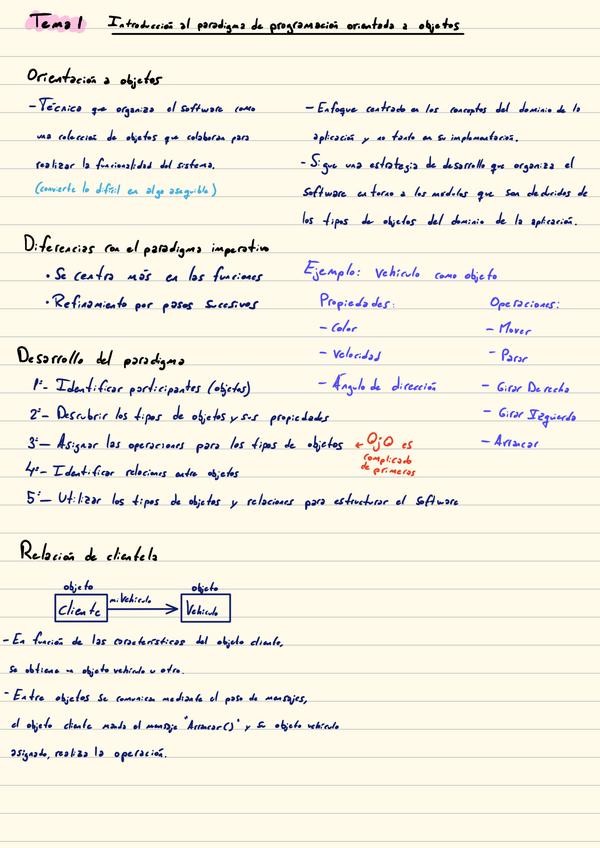 Tema 1 Introducción al paradigma de programación orientada a objetos
Orientación a objetos
- Técnica que organiza el software como
una colección de objetos que colaboran para
realizar la funcionalidad del sistema.
(convierte lo difícil en algo asequible)
- Enfoque centrado en los conceptos del dominio de la
aplicación y no tanto en su implementación.
- Sigue una estrategia de desarrollo que organiza el
software entorno a los modulos que son deducidos de
los tipos de objetos del dominio de la aplicación.
Diferencias con el paradigma imperativo
• Se centra más en las funciones
• Refinamiento por pasos sucesivos
Ejemplo: Vehículo como objeto
Propiedades:
- Color
- Velocidad
- Ángulo de dirección
Operaciones:
- Mover
- Parar
- Girar Derecha
- Girar Izquierda
- Arrancar
Desarrollo del paradigma
1º- Identificar participantes (objetos)
2º- Descubrir los tipos de objetos y sus propiedades
3º- Asignar las operaciones para los tipos de objetos ← OjO es
complicado
de primeras
4º- Identificar relaciones entre objetos
5º- Utilizar los tipos de objetos y relaciones para estructurar el software
Relación de clientela
objeto objeto
Cliente miVehiculo Vehiculo
- En función de las características del objeto cliente,
se obtiene un objeto vehículo u otro.
- Entre objetos se comunican mediante el paso de mensajes,
el objeto cliente manda el mensaje "Arrancar()" y su objeto vehículo
asignado, realiza la operación.